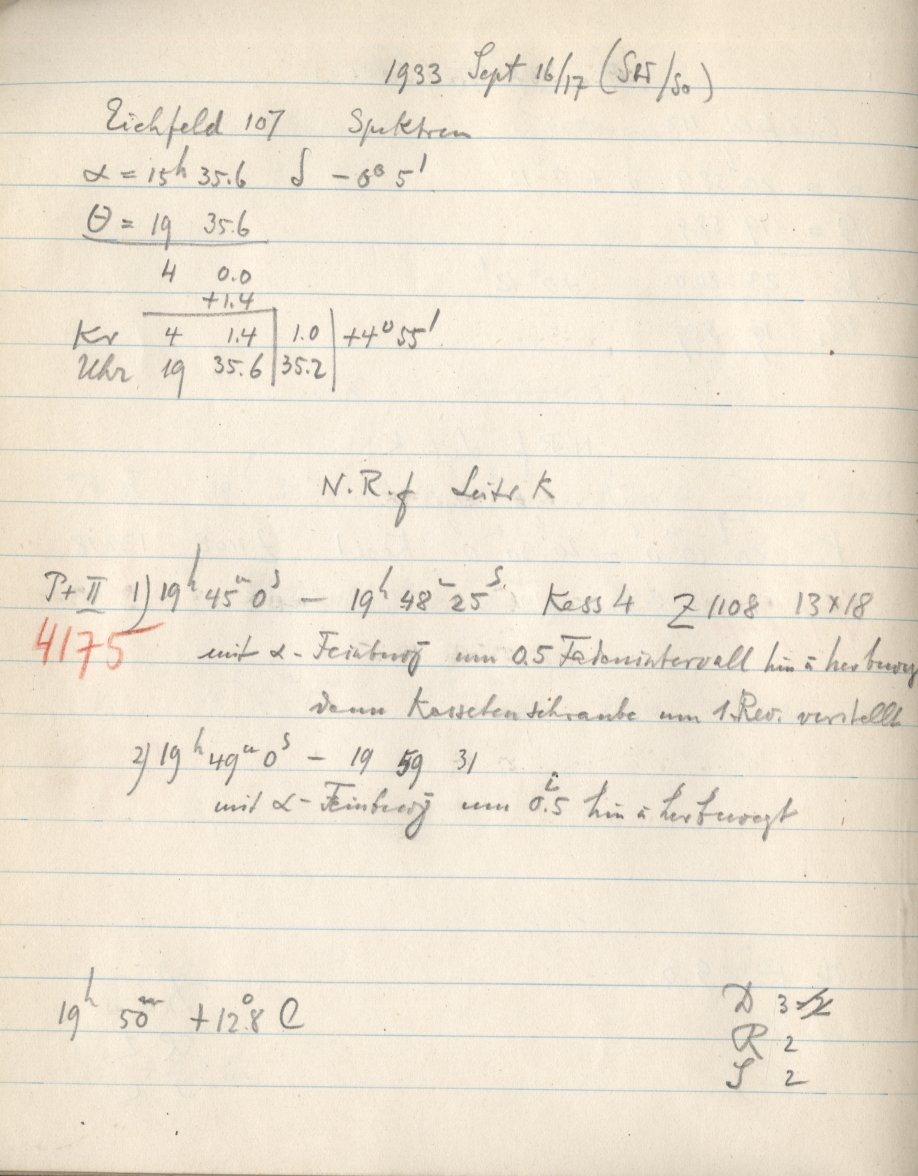 1933 Sept 16/17 (Sa/So)
Eichfeld 107 Spektren
α = 15h 35.6 δ -0° 5'
Θ = 19 35.6
4 0.0
+1.4
Kr 4 1.4 1.0 +4° 55'
Uhr 19 35.6 35.2
N.R.f Seite K
P+II 1) 19h 45m 0s – 19h 48m 25s Kass 4 Z 1108 13×18
4175
mit α-Feinbewg um 0.5 Fadenintervall hin u herbewegt
dann Kassettenschraube um 1 Rev. verstellt
2) 19h 49m 0s – 19 59 31
mit α-Feinbewg um 0.5 hin u herbewegt
19h 50m +12°.8 C
D 3
R 2
S 2